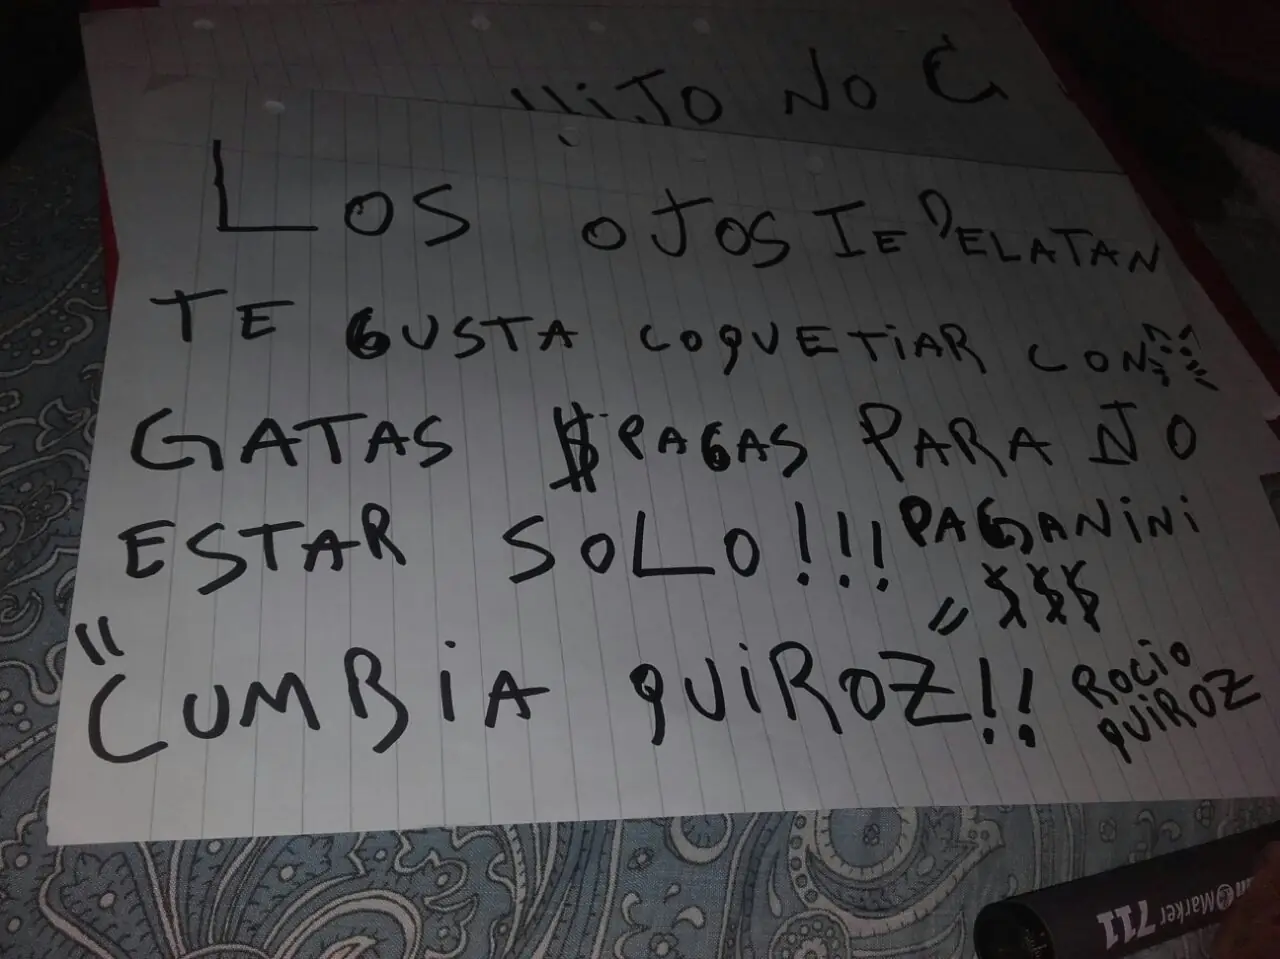 HIJO NO
LOS OJOS TE DELATAN
TE GUSTA COQUETIAR CON
GATAS $ PAGAS PARA NO
ESTAR SOLO!!! PAGANINI
" $$$
"CUMBIA QUIROZ!! ROCIO
QUIROZ
Marker 711